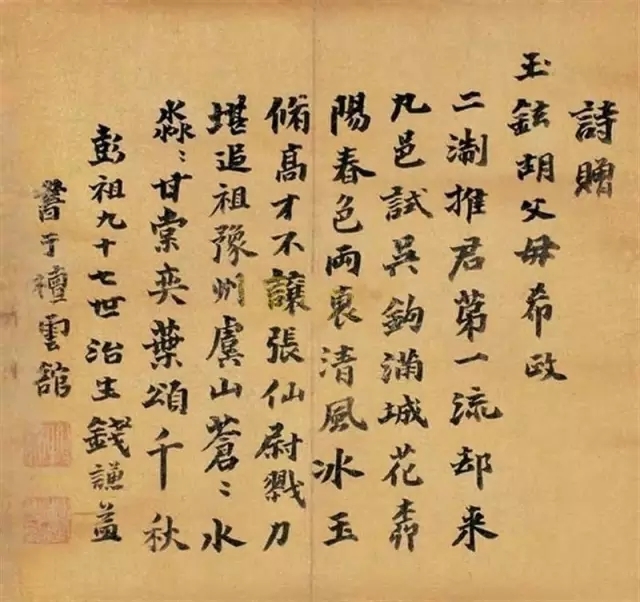 詩贈
玉鉉胡父母希政
二淛推君第一流却来
九邑試吳鉤滿城花桺
陽春色両褎清風冰玉
脩高才不讓張仙尉戮力
堪追祖豫州虞山蒼〻水
淼〻甘棠奕葉頌千秋
彭祖九十七世治生錢謙益
書于檀雲舘